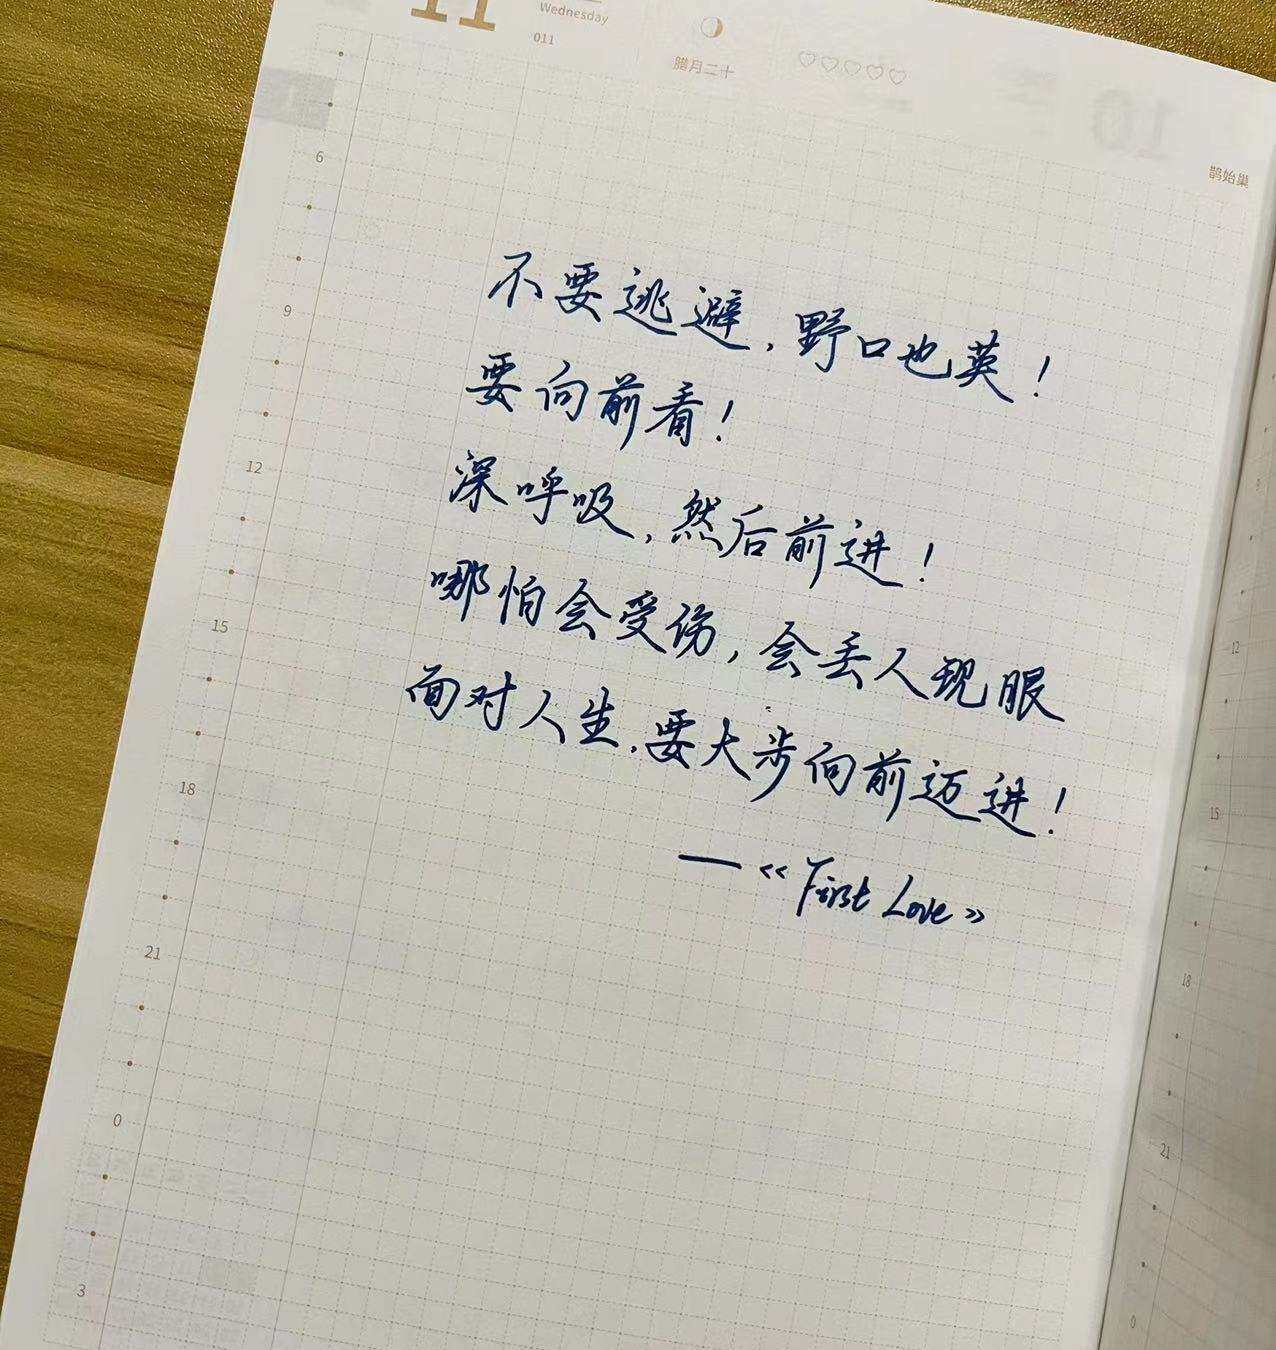 11
Wednesday
011
腊月二十
10
鹊始巢
不要逃避，野口也英！
要向前看！
深呼吸，然后前进！
哪怕会受伤，会丢人现眼
面对人生，要大步向前迈进！
—《First Love》
6
9
12
15
18
21
0
3
12
15
18
21
0